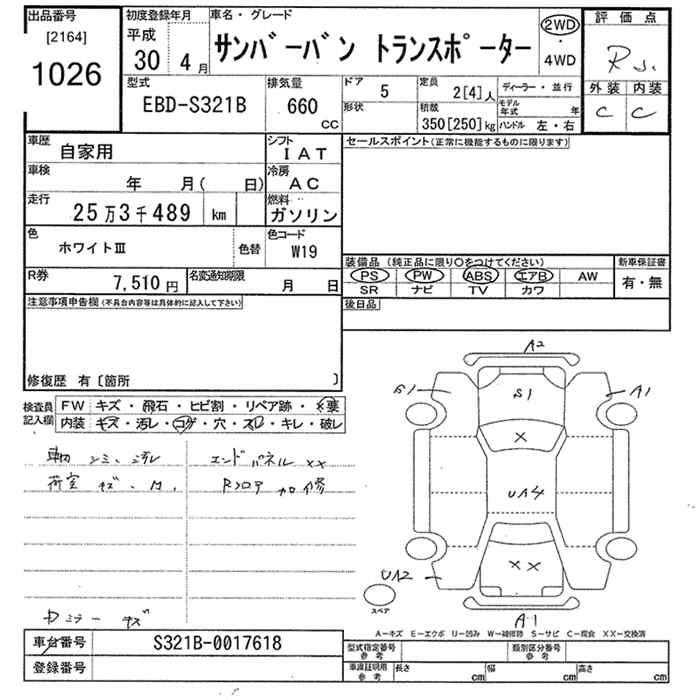 出品番号
[2164]
1026
初度登録年月
平成
30年 4月
車名・グレード
サンバーバン トランスポーター
2WD
・
4WD
評価点
R
外装 内装
C C
型式
EBD-S321B
排気量
660
CC
ドア 5
形状
定員
2[4]人
積載
350[250]kg
ディーラー・並行
モデル年式 年
ハンドル 左・右
車歴
自家用
シフト
IAT
セールスポイント(正常に機能するものに限ります)
車検
年 月( 日)
冷房
AC
走行
25万3千489 km
燃料
ガソリン
色
ホワイトⅢ
色替
色コード
W19
装備品(純正品に限り○をつけてください)
PS PW ABS エアB AW
SR ナビ TV カワ
新車保証書
有・無
R券
7,510円
名変通知期限
月 日
後日品
注意事項申告欄(不具合内容等は具体的に記入して下さい)
修復歴 有〔箇所 〕
検査員記入欄
FW キズ・飛石・ヒビ割・リペア跡・×要
内装 キズ・汚レ・コゲ・穴・スレ・キレ・破レ
シミ、汚レ
荷室 キズ、
エンドパネル ××
Rフロア 加修
ミラー キズ
A2
S1
S1
A1
×
UA4
××
UA2
A1
スペア
A−キズ E−エクボ U−凹み W−補修跡 S−サビ C−腐食 XX−交換済
車台番号
S321B-0017618
登録番号
型式指定番号 参考
類別区分番号 参考
車庫証明用 参考
長さ cm 幅 cm 高さ cm